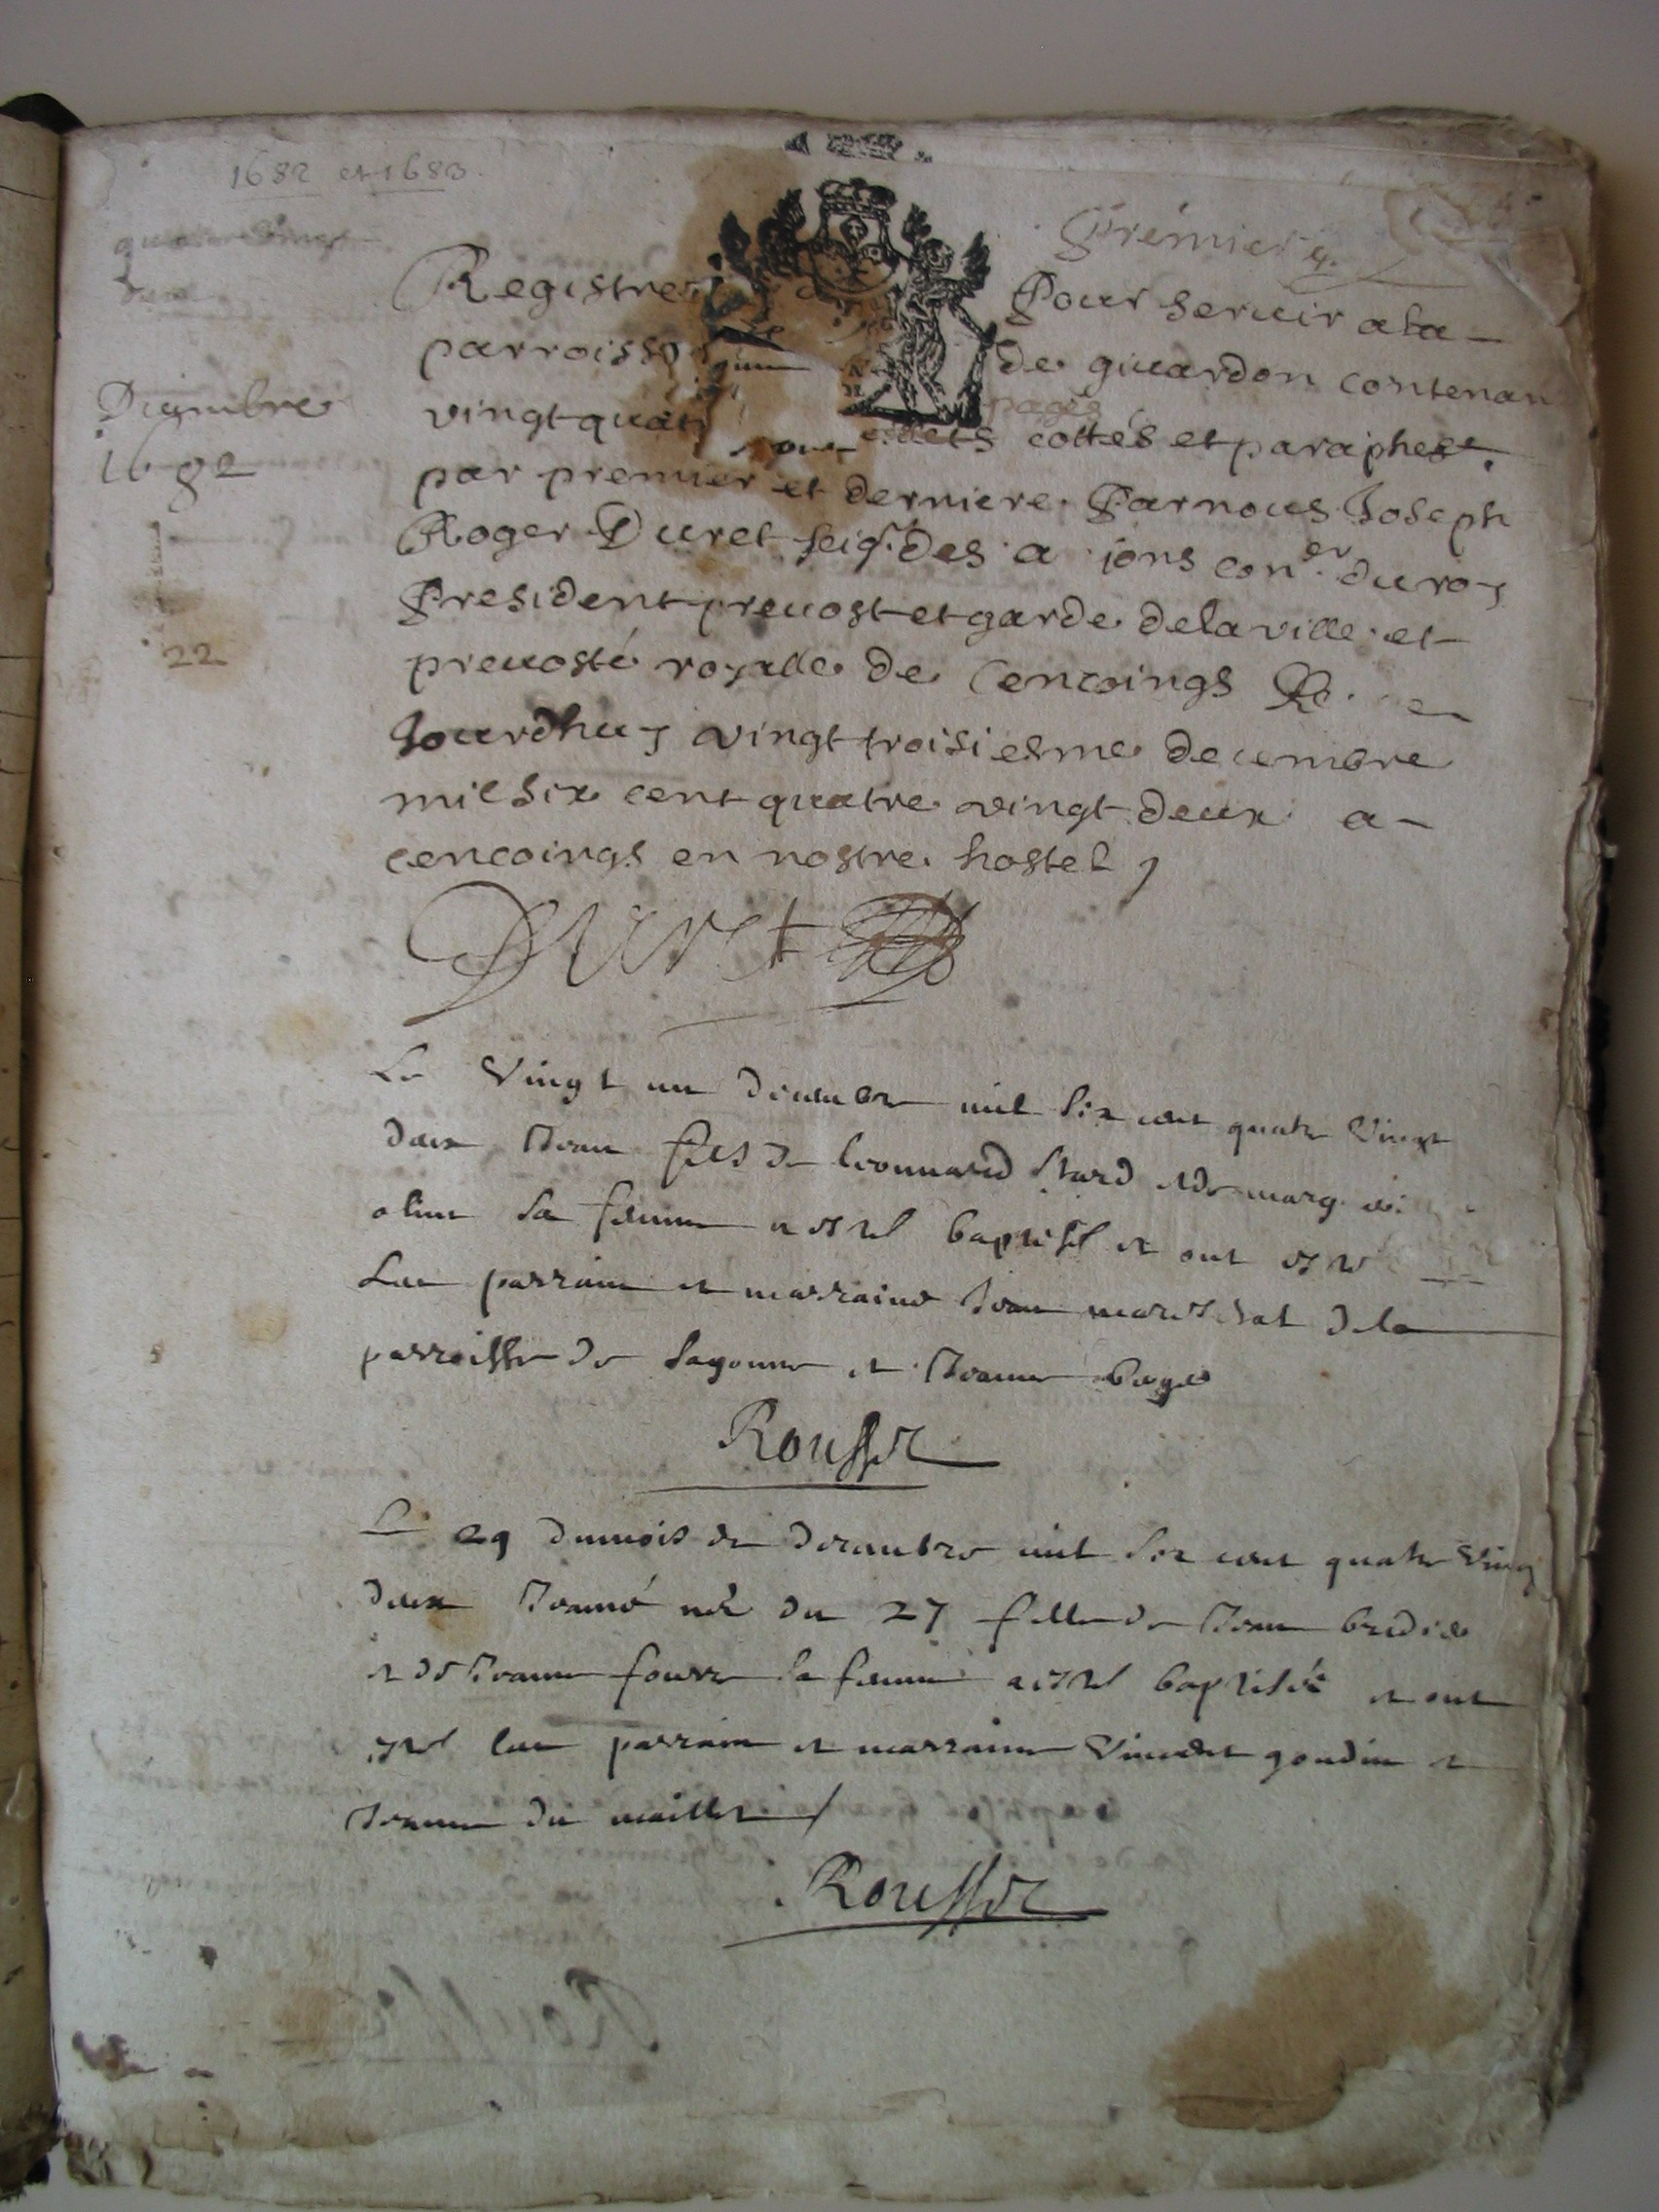 1682 et 1683
Premier
Registre Pour servir a la
parroisse de giuardon contenan
vingt quat pages
cottés et paraphes
par premier et derniere Par nous Joseph
Roger Duret seig.r des a jons con.er du roy
President preuost et garde de la ville et
preuosté royalle de Cencoings
Jourdhuy vingt troisiesme decembre
mil six cent quatre vingt deux a
cencoings en nostre hostel
Duret
Decembre
1682
22
Le Vingt un decembre mil six cent quatre Vingt
deux Jean fils de leonnard et de marg
sa femme a esté baptisé et ont esté
Les parrain et marraine Jean mareschal de la
parroisse de Sagonne et Jeanne
Rousset
Le 29 du mois de decembre mil six cent quatre Ving
deux Jeanne née du 27 fille de Jean
et de Jeanne sa femme a esté baptisée et ont
esté les parrain et marraine Vincent goudin et
Jeanne du maillet
Rousset